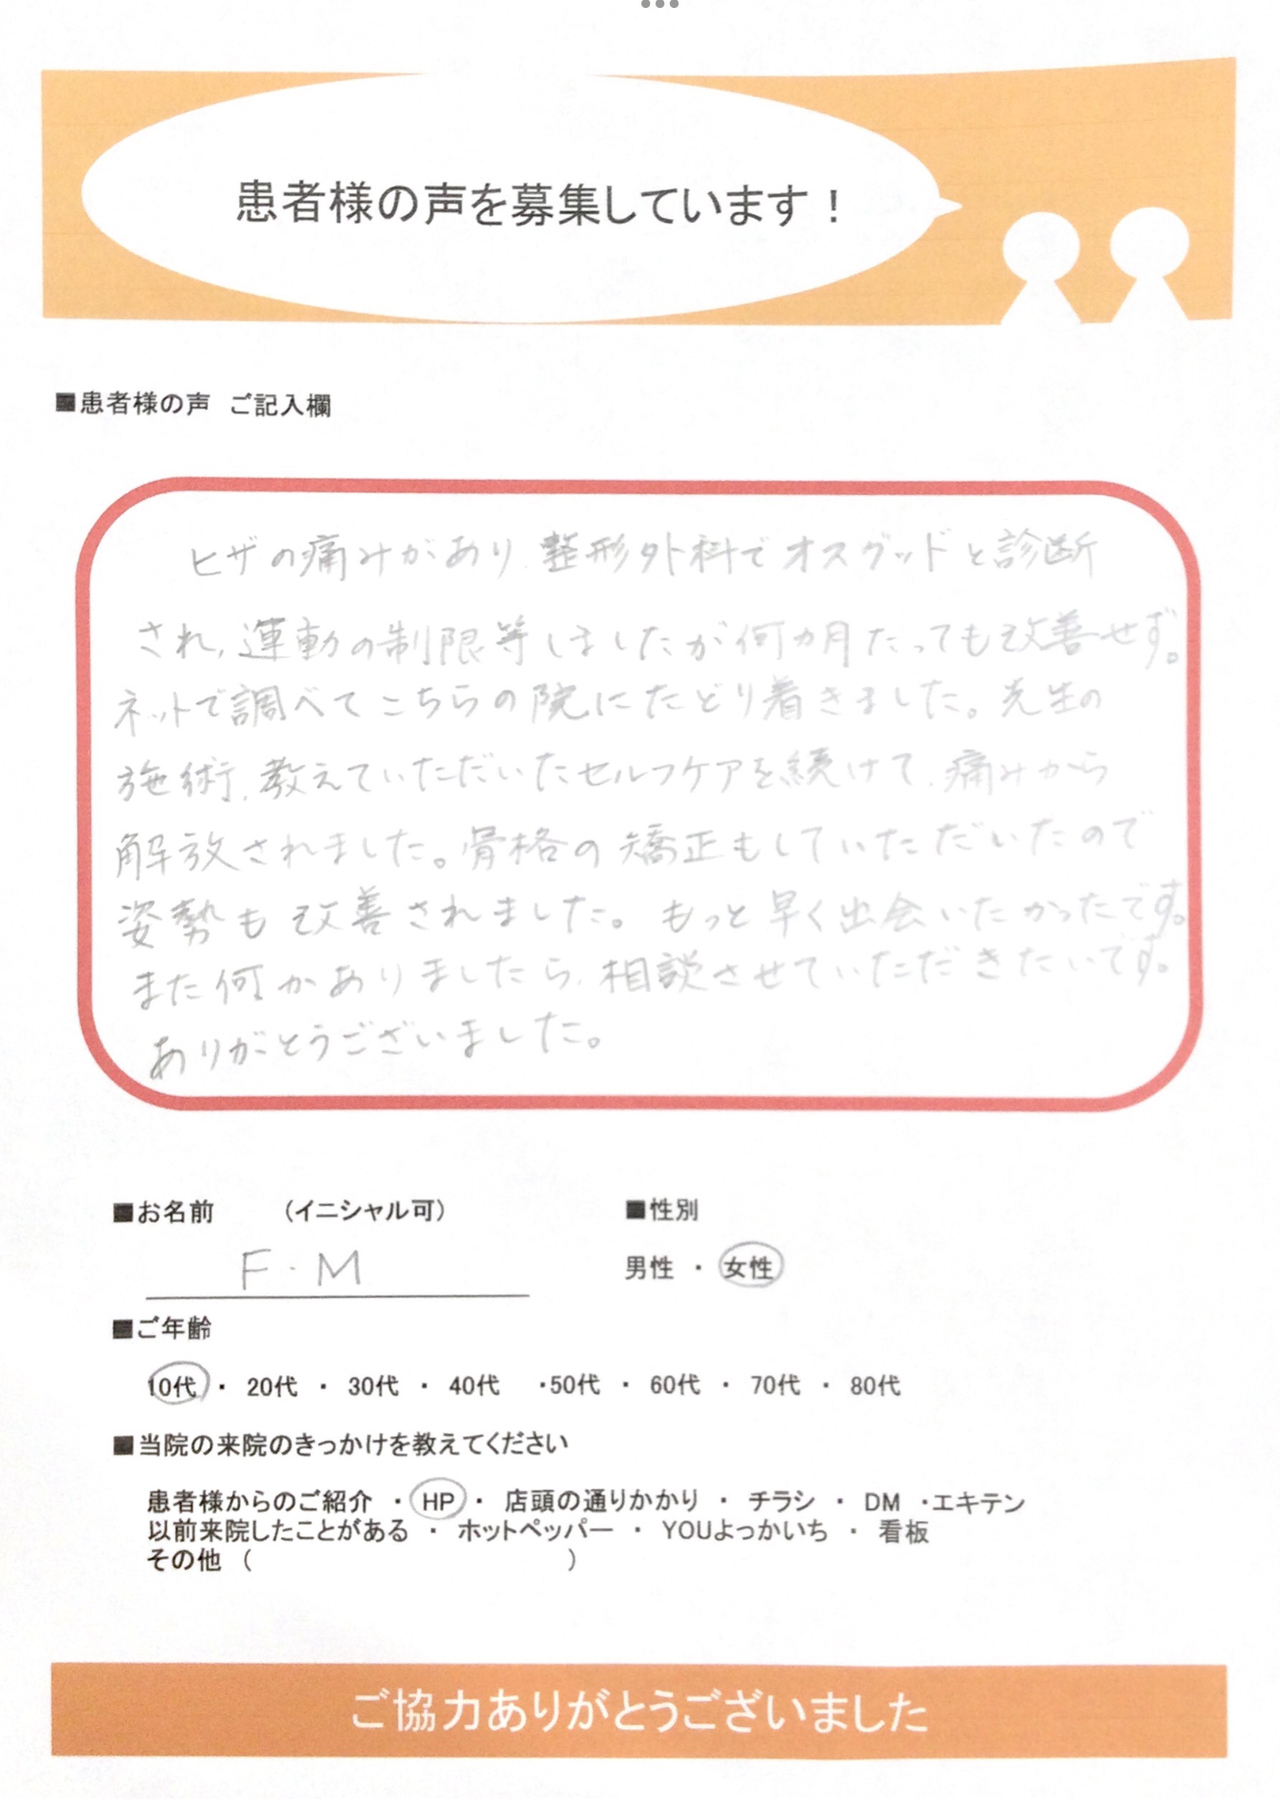 患者様の声を募集しています！
■患者様の声 ご記入欄
ヒザの痛みがあり、整形外科でオスグッドと診断
され、運動の制限等しましたが何カ月たっても改善せず。
ネットで調べてこちらの院にたどり着きました。先生の
施術、教えていただいたセルフケアを続けて、痛みから
解放されました。骨格の矯正もしていただいたので
姿勢も改善されました。もっと早く出会いたかったです。
また何かありましたら、相談させていただきたいです。
ありがとうございました。
■お名前 （イニシャル可） ■性別
F・M 男性 ・ 女性
■ご年齢
10代 ・ 20代 ・ 30代 ・ 40代 ・50代 ・ 60代 ・ 70代 ・ 80代
■当院の来院のきっかけを教えてください
患者様からのご紹介 ・ HP ・ 店頭の通りかかり ・ チラシ ・ DM ・エキテン
以前来院したことがある ・ ホットペッパー ・ YOUよっかいち ・ 看板
その他 （ ）
ご協力ありがとうございました